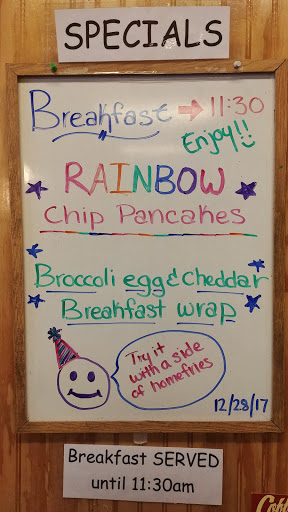 SPECIALS
Breakfast → 11:30
Enjoy!!
RAINBOW
Chip Pancakes
Broccoli egg & Cheddar
Breakfast wrap
Try it
with a side
of homefries
12/28/17
Breakfast SERVED
until 11:30am